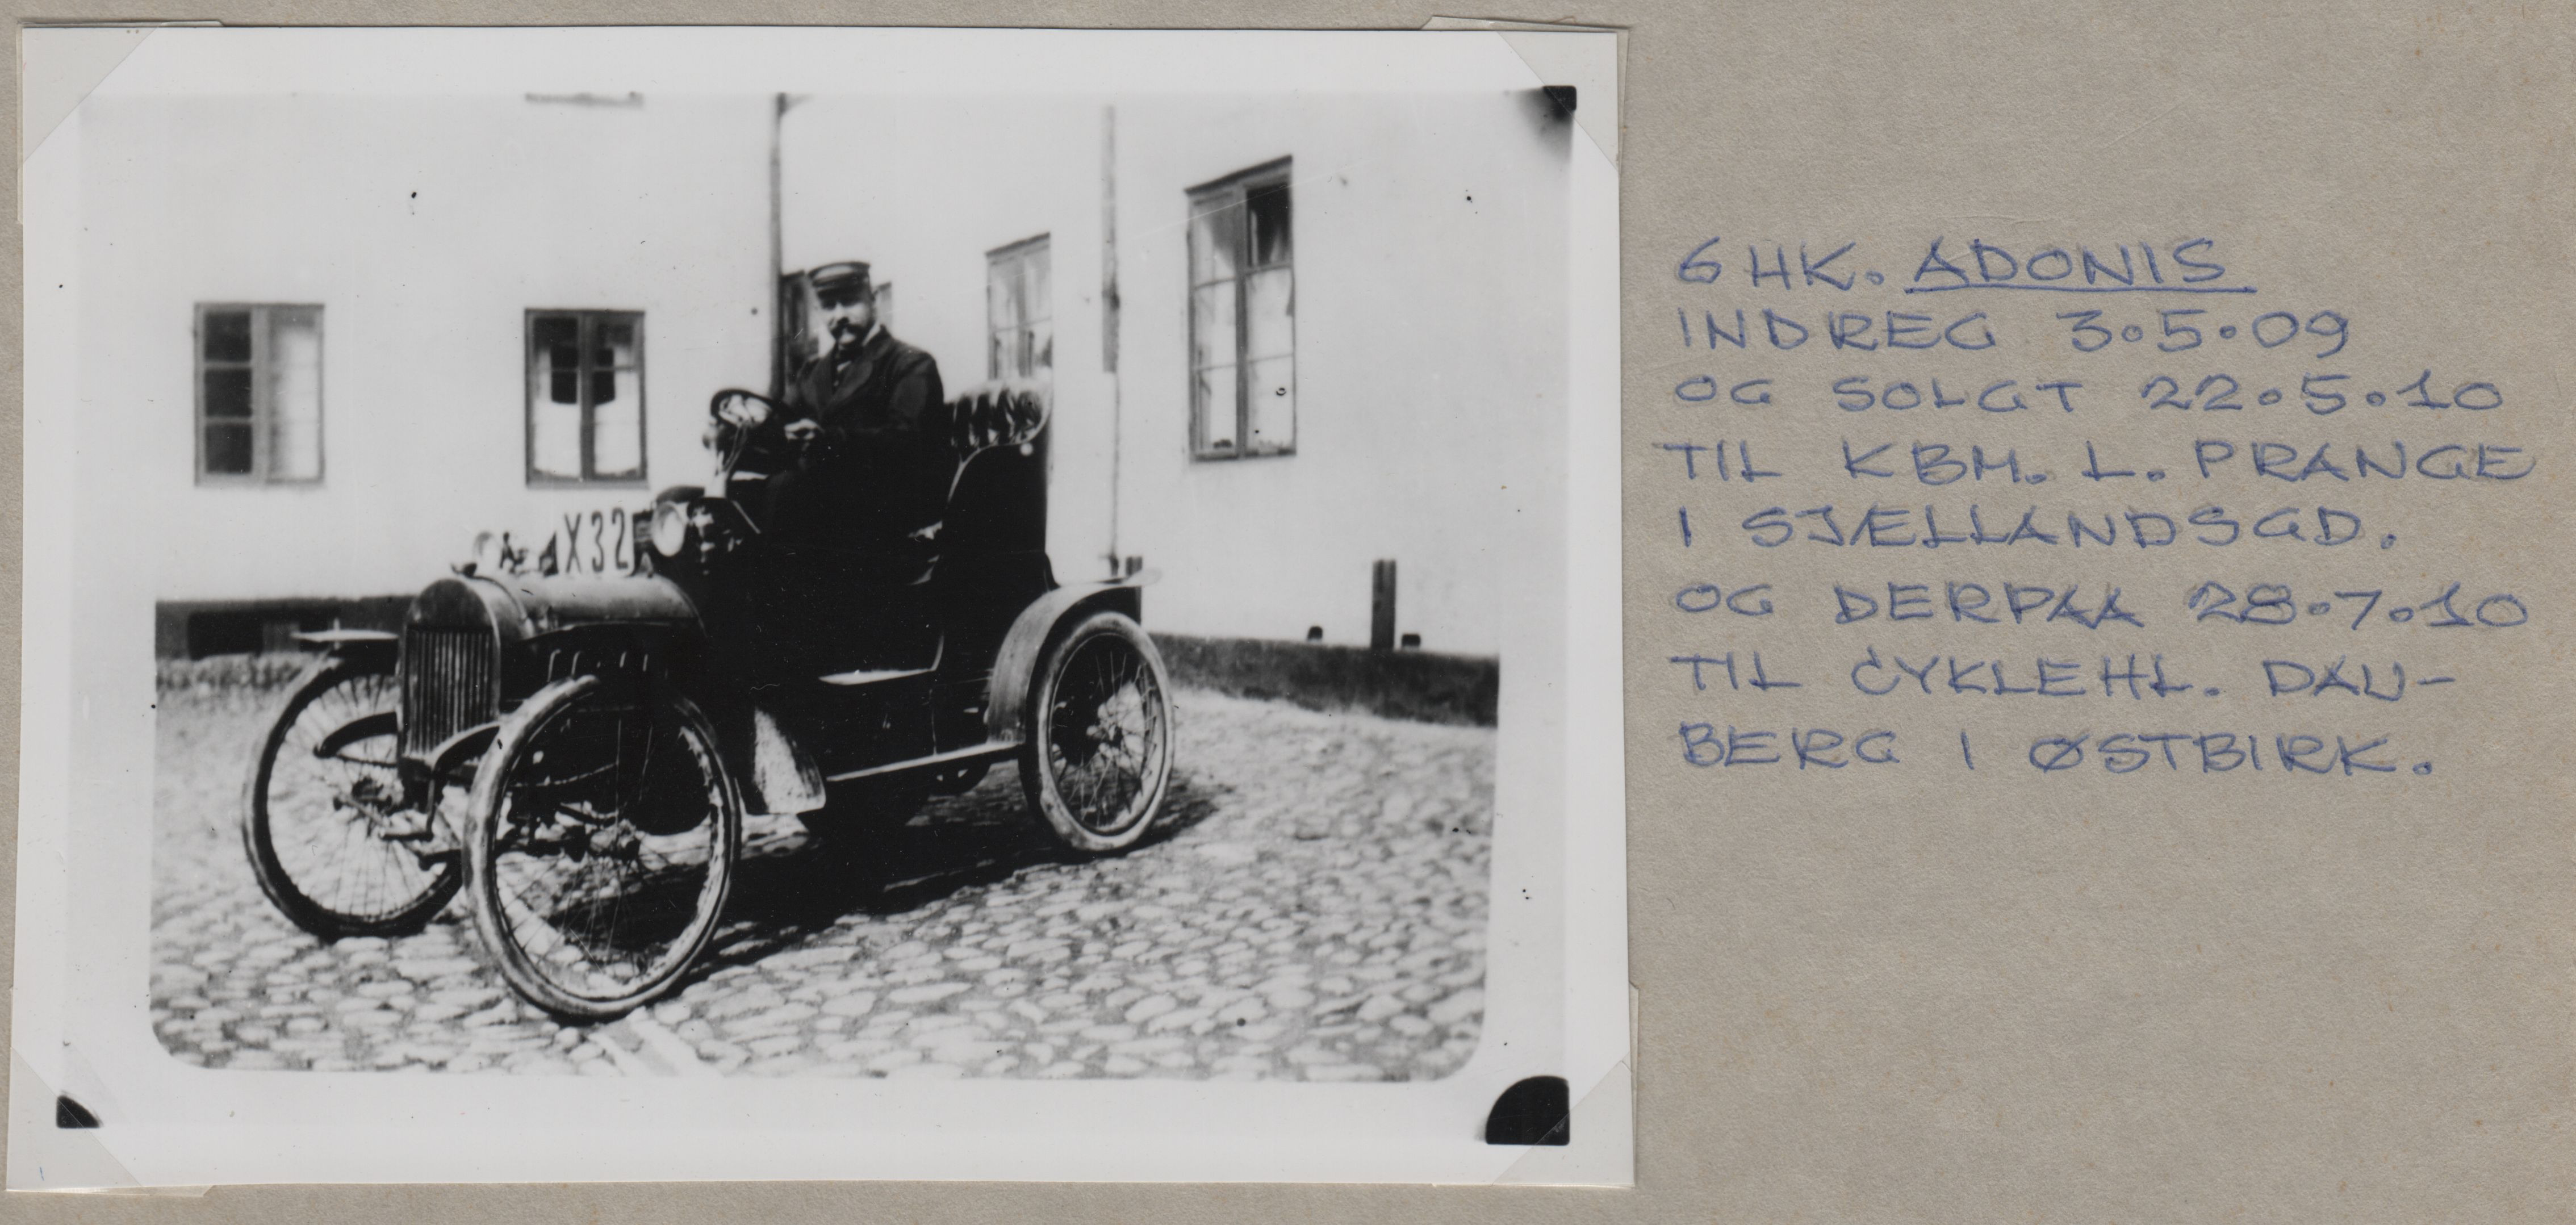 X32
6 HK. ADONIS
INDREG 3.5.09
OG SOLGT 22.5.10
TIL KBM. L. PRANGE
I SJÆLLANDSGD.
OG DERPAA 28.7.10
TIL CYKLEHL. DAU-
BERG I ØSTBIRK.